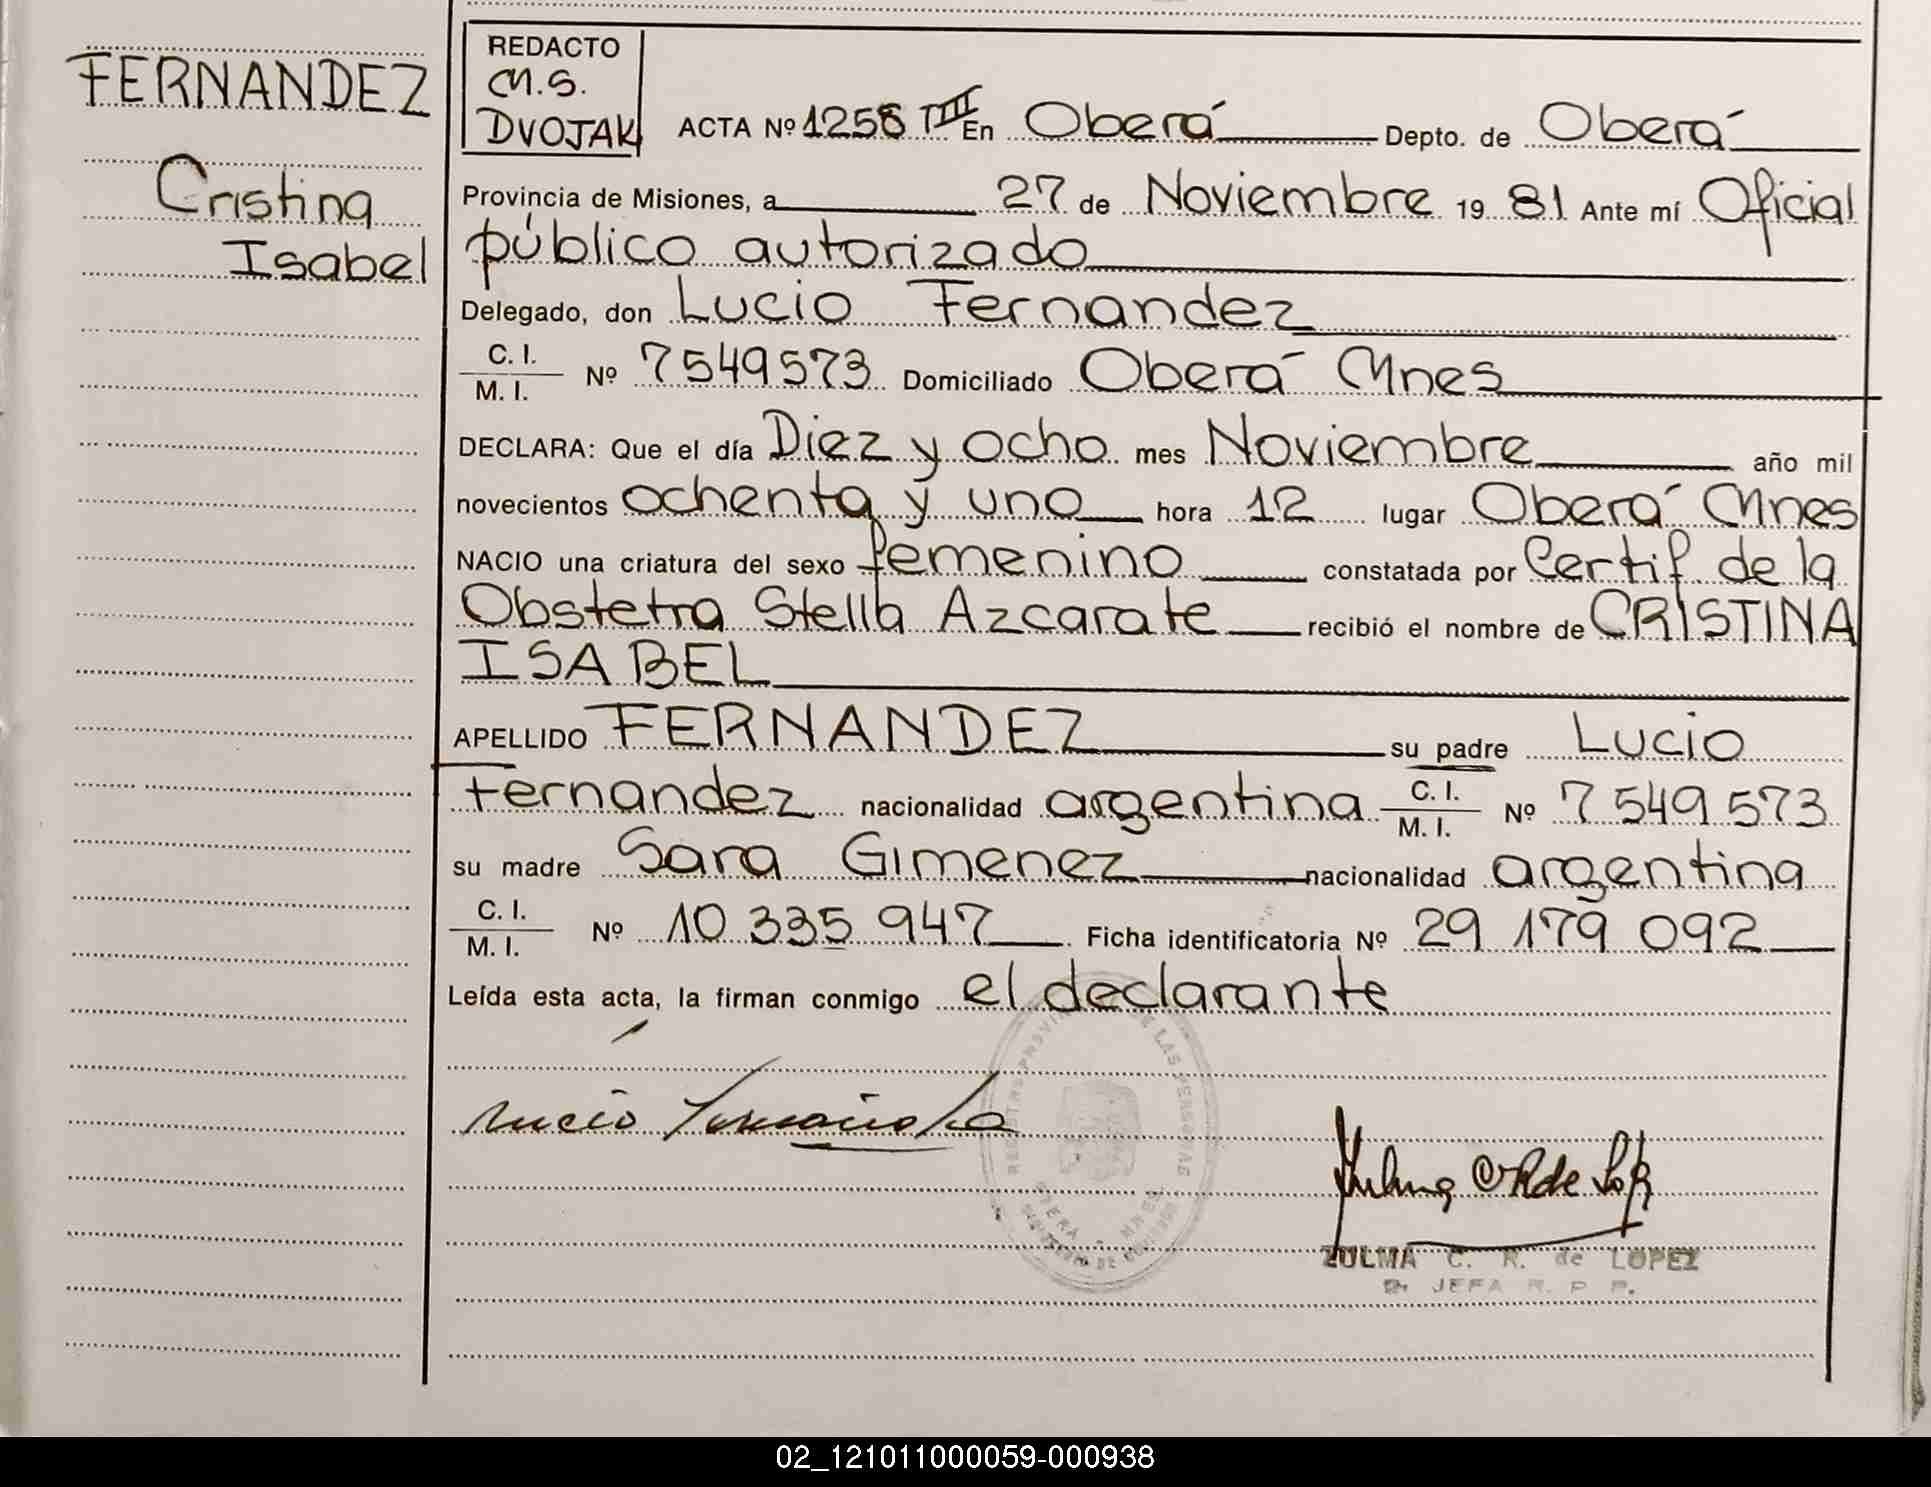 FERNANDEZ
Cristina
Isabel
REDACTO
M.S.
DVOJAK
ACTA Nº 1258 TIII En Oberá Depto. de Oberá
Provincia de Misiones, a 27 de Noviembre 19 81 Ante mí Oficial
público autorizado
Delegado, don Lucio Fernandez
C. I.
M. I. Nº 7549573 Domiciliado Oberá Mnes
DECLARA: Que el día Diez y ocho mes Noviembre año mil
novecientos ochenta y uno hora 12 lugar Oberá Mnes
NACIO una criatura del sexo femenino constatada por Certif de la
Obstetra Stella Azcarate recibió el nombre de CRISTINA
ISABEL
APELLIDO FERNANDEZ su padre Lucio
Fernandez nacionalidad argentina C. I. M. I. Nº 7549573
su madre Sara Gimenez nacionalidad argentina
C. I.
M. I. Nº 10 335 947 Ficha identificatoria Nº 29 179 092
Leída esta acta, la firman conmigo el declarante
DE LAS PERSONAS
ZULMA C. R. de LOPEZ
JEFA R. P. P.
02_121011000059-000938